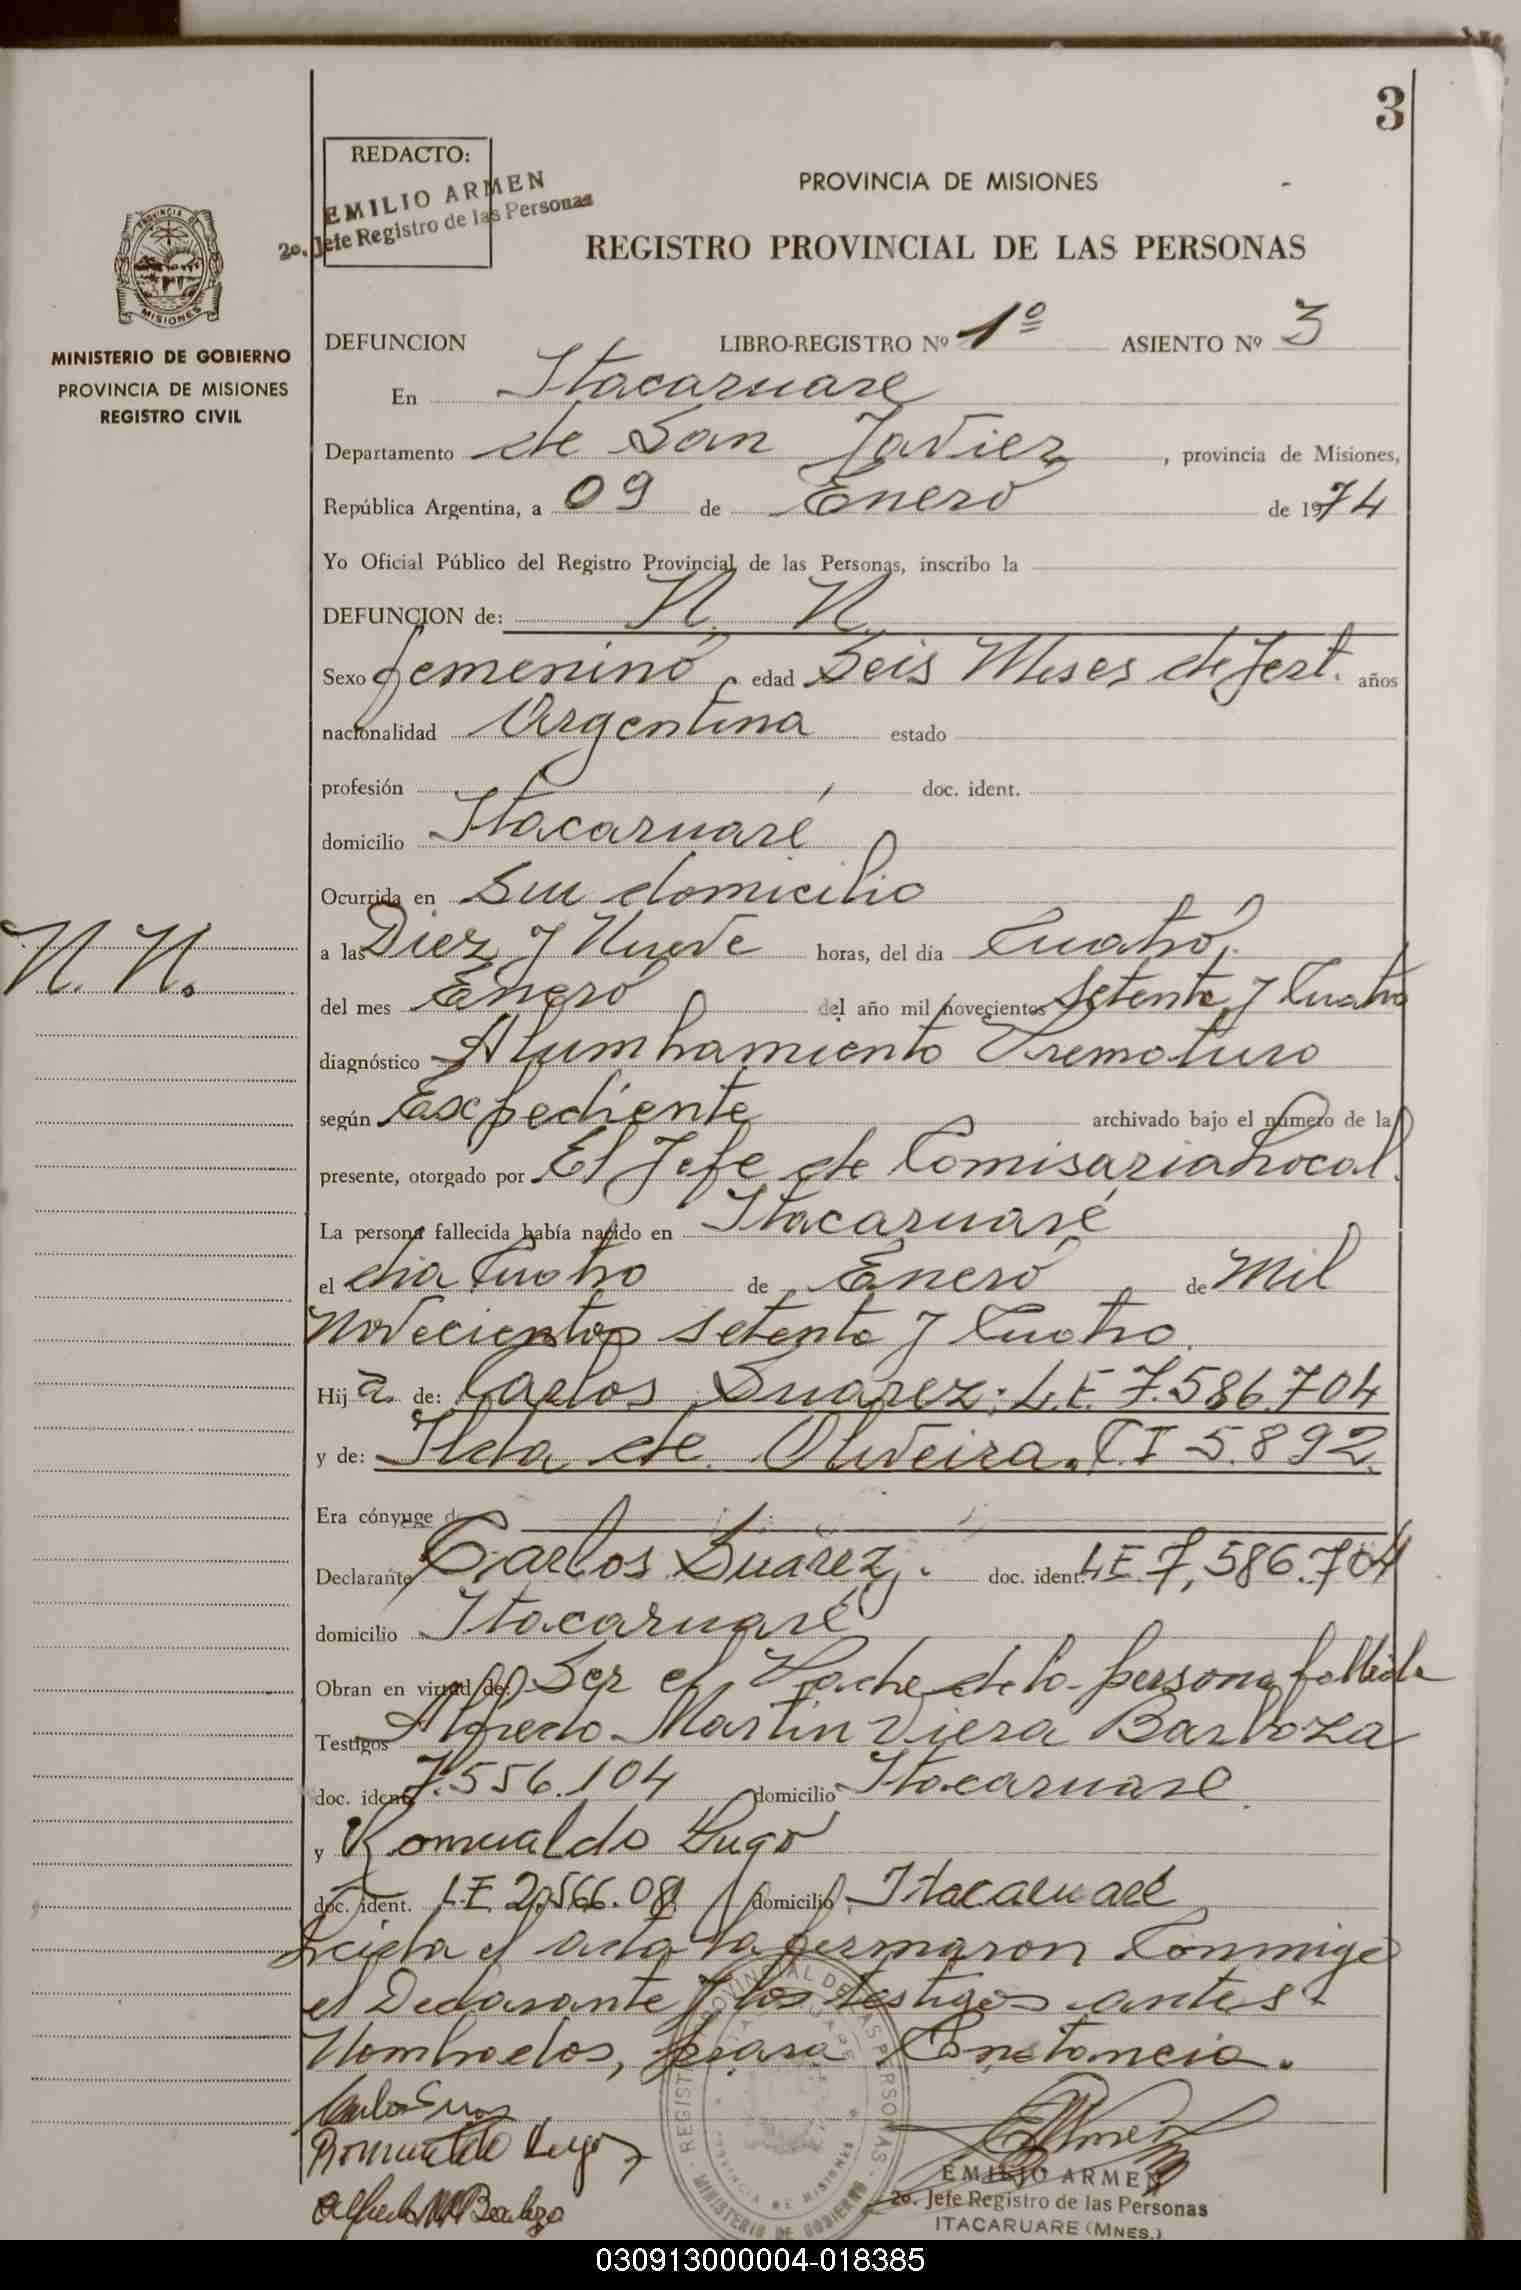 3
REDACTO:
EMILIO ARMEN
2o. Jefe Registro de las Personas
PROVINCIA DE MISIONES
REGISTRO PROVINCIAL DE LAS PERSONAS
PROVINCIA DE MISIONES
MINISTERIO DE GOBIERNO
PROVINCIA DE MISIONES
REGISTRO CIVIL
DEFUNCION LIBRO-REGISTRO Nº 1º ASIENTO Nº 3
En Itacaruare
Departamento de San Javier, provincia de Misiones,
República Argentina, a 09 de Enero de 1974
Yo Oficial Público del Registro Provincial de las Personas, inscribo la
DEFUNCION de: N. N.
Sexo femenino, edad Seis Meses de Jest. años
nacionalidad Argentina estado
profesión doc. ident.
domicilio Itacaruaré
Ocurrida en Su domicilio
N. N.
a las Diez y Nueve horas, del día Cuatro,
del mes Enero del año mil novecientos Setenta y Cuatro
diagnóstico Alumbramiento Prematuro
según Expediente archivado bajo el número de la
presente, otorgado por El Jefe de Comisaria Local.
La persona fallecida había nacido en Itacaruaré
el dia Cuatro de Enero de Mil
Novecientos Setenta y Cuatro.
Hij a de: Carlos Suarez: L.E. 7.586.704
y de: Ilda de Oliveira. C.I 5.892.
Era cónyuge de
Declarante Carlos Suárez. doc. ident. L.E. 7,586.704
domicilio Itacaruaré
Obran en virtud de: Ser el Padre de la persona fallecida
Testigos Alfredo Martin Viera Barboza
doc. ident. 7.556.104 domicilio Itacaruare.
y Romualdo Lugo
doc. ident. L.E. 2.566.081 domicilio Itacaruaré
Leida el acta la firmaron Conmigo
el Declarante y los testigos antes
Nombrados, para Constancia.
Carlos Suarez
Romualdo Lugo
Alfredo M V Barboza
REGISTRO PROVINCIAL DE LAS PERSONAS
ITACARUARE
PROVINCIA DE MISIONES
MINISTERIO DE GOBIERNO
EMILIO ARMEN
2o. Jefe Registro de las Personas
ITACARUARE (MNES.)
030913000004-018385